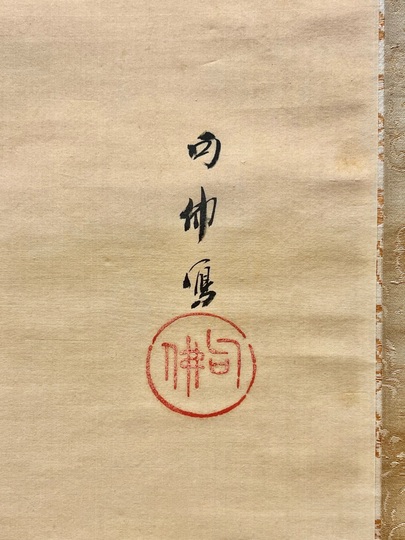 句佛寫
句佛